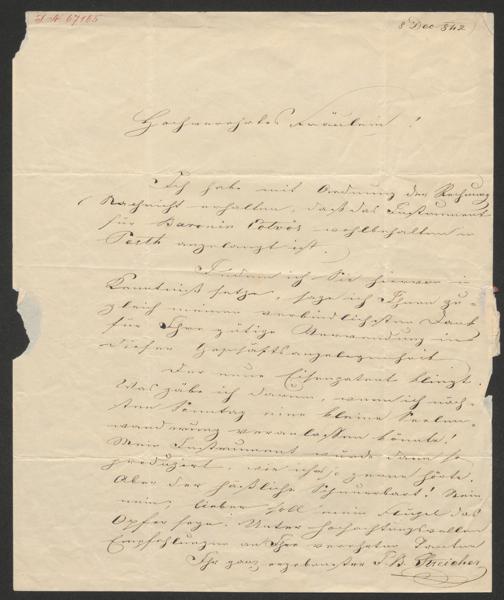 I. N. 67165
8 Dec 842
Hochverehrtes Fräulein!
Ich habe mit Ordnung der Rechnung
Nachricht erhalten, daß das Instrument
für Baronin Eötvös wohlbehalten in
Pesth angelangt ist.
Indem ich Sie hievon in
Kenntniß setze, sage ich Ihnen zu-
gleich meinen verbindlichsten Dank
für Ihre gütige Verwendung in
dieser Geschäftsangelegenheit.
Der neue Eisenpatent klingt.
Was gäbe ich darum, wenn ich näch-
sten Sonntag eine kleine Seelen-
wanderung veranlassen könnte!
Mein Instrument würde dann so
produzirt, wie ich's gerne hörte.
Aber der häßliche Schnurbart! Nein,
nein, lieber soll mein Flügel das
Opfer seyn. Unter hochachtungsvollen
Empfehlungen an Ihre verehrten Tanten
Ihr ganz ergebenster J. B. Streicher